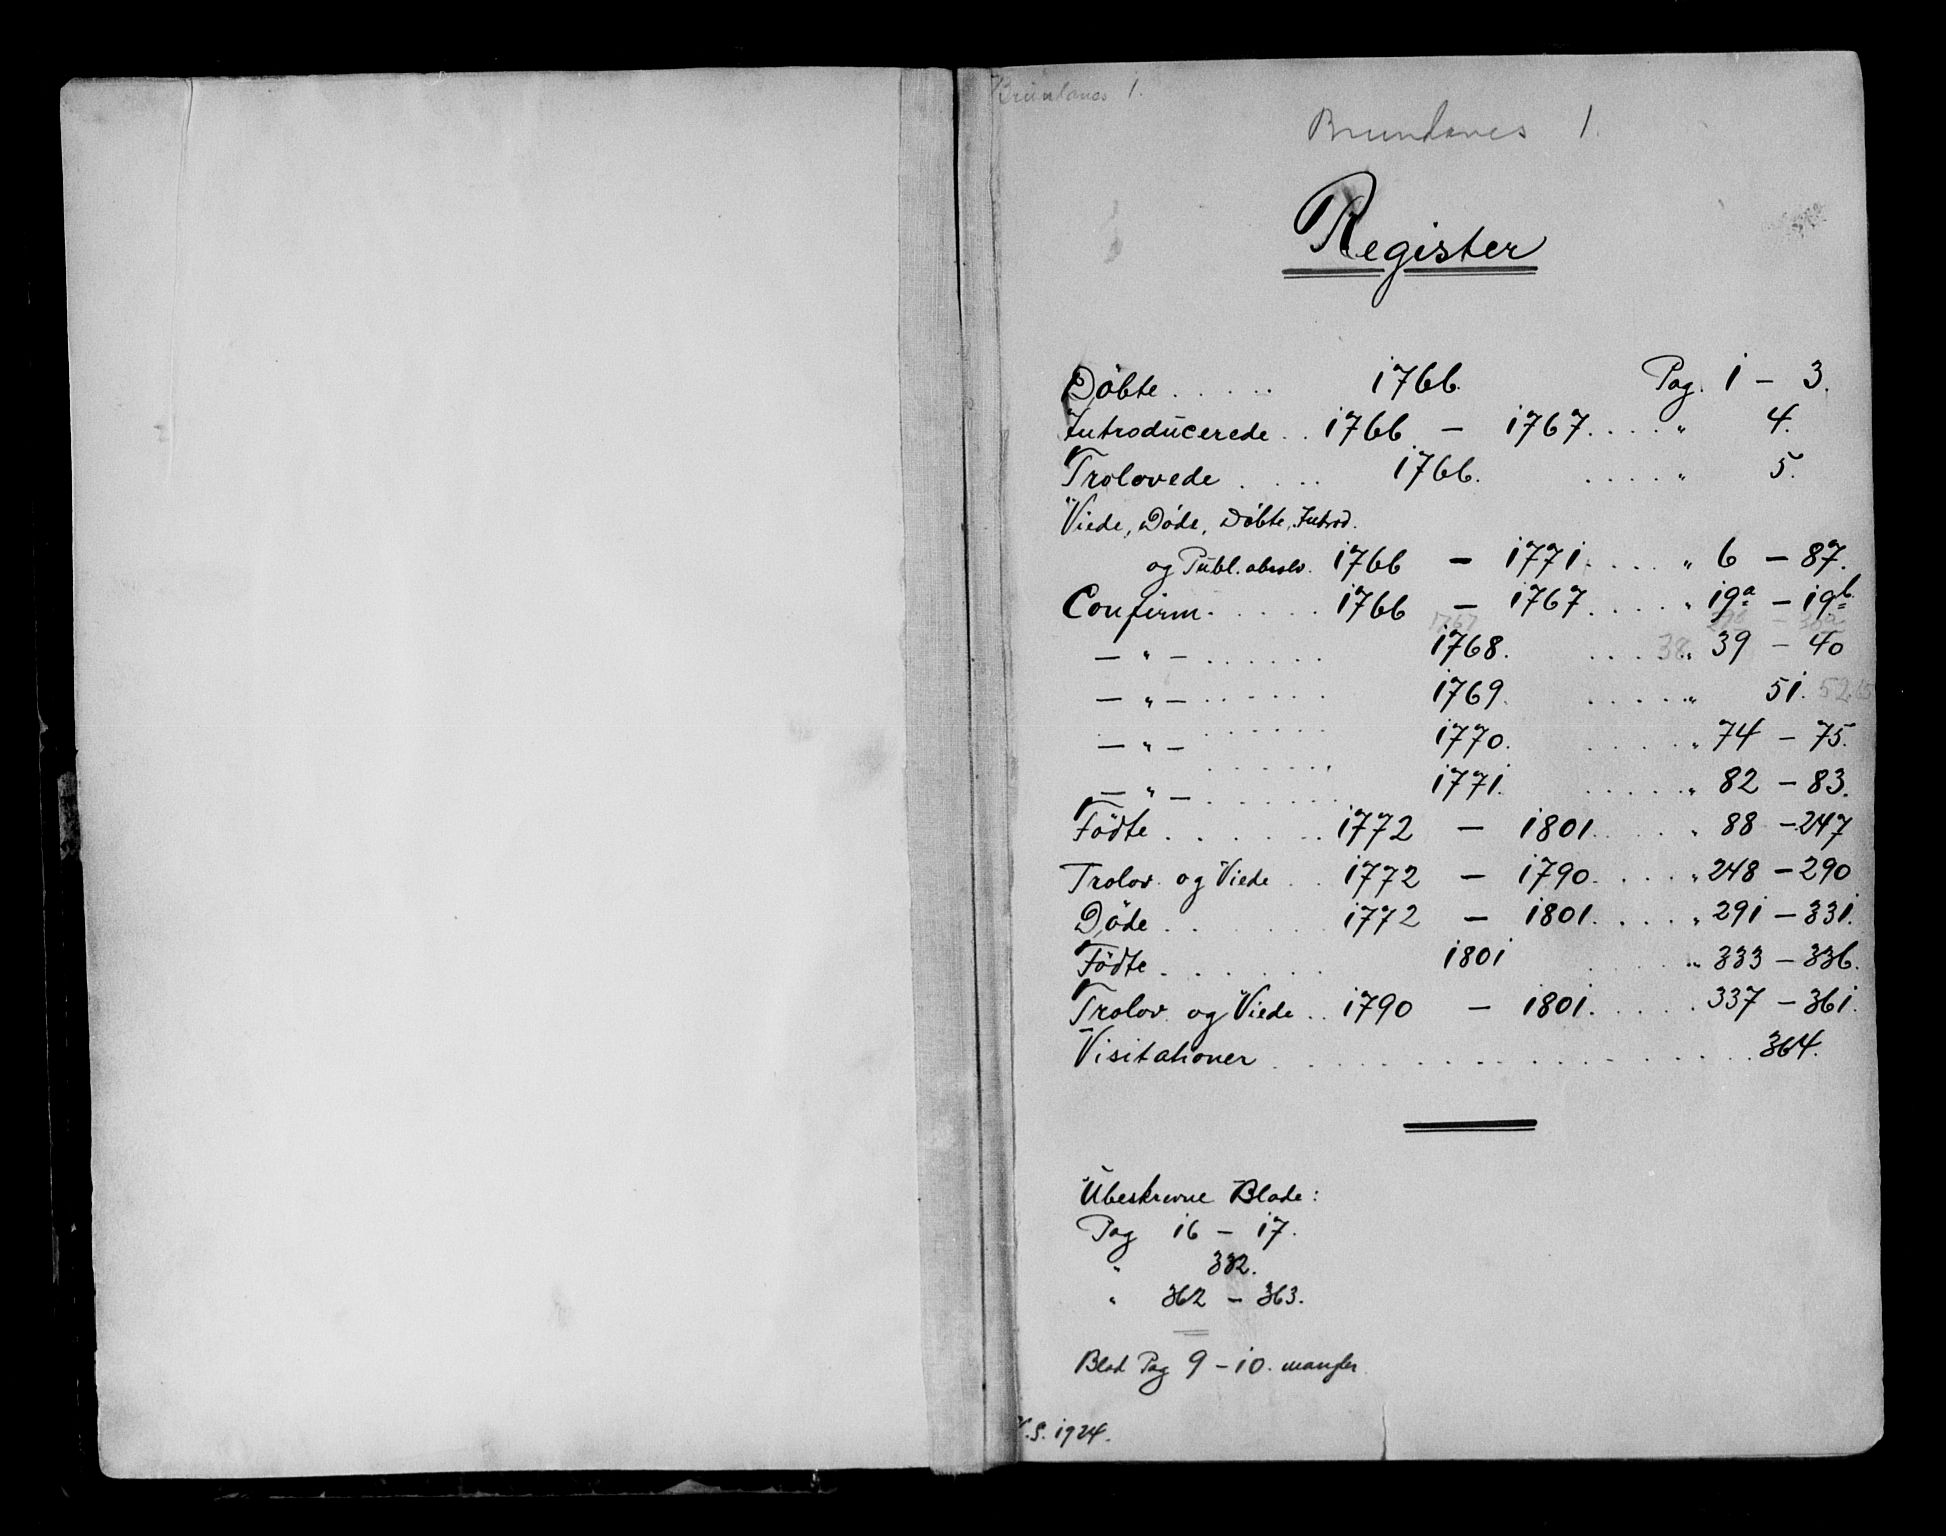 Brunlanes 1.
Brunlanes 1.
Register
Döbte . . . . . 1766. Pag. 1 – 3.
Introducerede . . 1766 – 1767. . . . „ 4.
Trolovede . . . . 1766. . . . . „ 5.
Viede, Döde, Döbte, Introd.
og Publ. absolv. 1766 – 1771. . . . „ 6 – 87.
Confirm. . . . . 1766 – 1767. . . . „ 19a – 19b
1767 29b – 30a
– „ – . . . . . . 1768. . . . 38 „ 39 – 40
– „ – . . . . . . 1769. . . . . „ 51. 52.
– „ – . . . . . . 1770. . . . . „ 74 – 75.
– „ – . . . . . . 1771. . . . . „ 82 – 83.
Födte . . . . . . 1772 – 1801. . . . „ 88 – 247
Trolov. og Viede . . 1772 – 1790. . . . „ 248 – 290
Döde . . . . . . 1772 – 1801. . . . „ 291 – 331.
Födte . . . . . . 1801 . . . . „ 333 – 336.
Trolov. og Viede . . 1790 – 1801. . . . . 337 – 361.
Visitationer . . . . . . . . . . . . . 364.
Ubeskrevne Blade:
Pag 16 – 17.
„ 332.
„ 362 – 363.
Blad Pag 9 – 10. mangler
S. 1924.